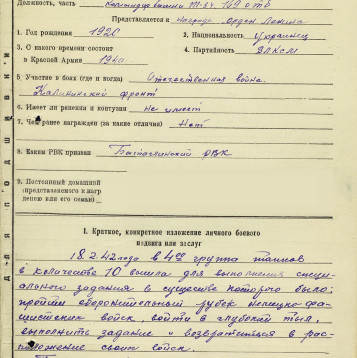 Должность, часть Командир машины Т-34. 149 отб
Представляется к награде Орден Ленина
1. Год рождения 1920 2. Национальность украинец
3. С какого времени состоит в Красной Армии 1940 4. Партийность ВЛКСМ
5. Участие в боях (где и когда) Отечественная война.
Калининский фронт
6. Имеет ли ранения и контузии не имеет
7. Чем ранее награжден (за какие отличия) Нет
8. Каким РВК призван РВК
9. Постоянный домашний
(представляемого к награждению или его семьи)
ДЛЯ ПОДШИВКИ
I. Краткое, конкретное изложение личного боевого
подвига или заслуг
18.2.42 года в 4 группа танков
в количестве 10 вышла для выполнения специ-
ального задания в существе которого было:
пройти оборонительный рубеж немецко-фа-
шистских войск, войти в глубокий тыл,
выполнить задание и возвратиться в рас-
положение своих войск.